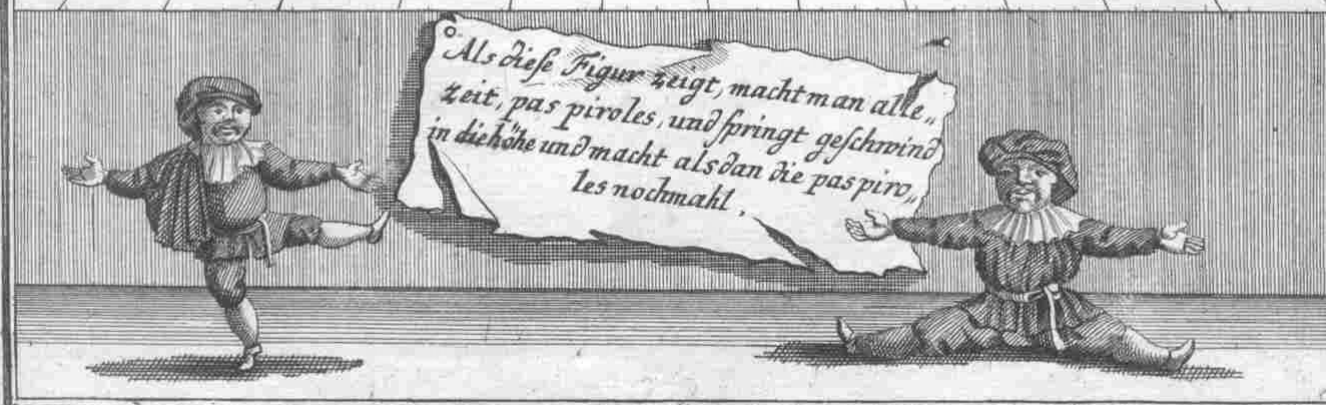 Als dieſe Figur zeigt, macht man alle„
zeit, pas piroles, und ſpringt geſchwind
in die höhe und macht als dan die pas piro„
les nochmahl.